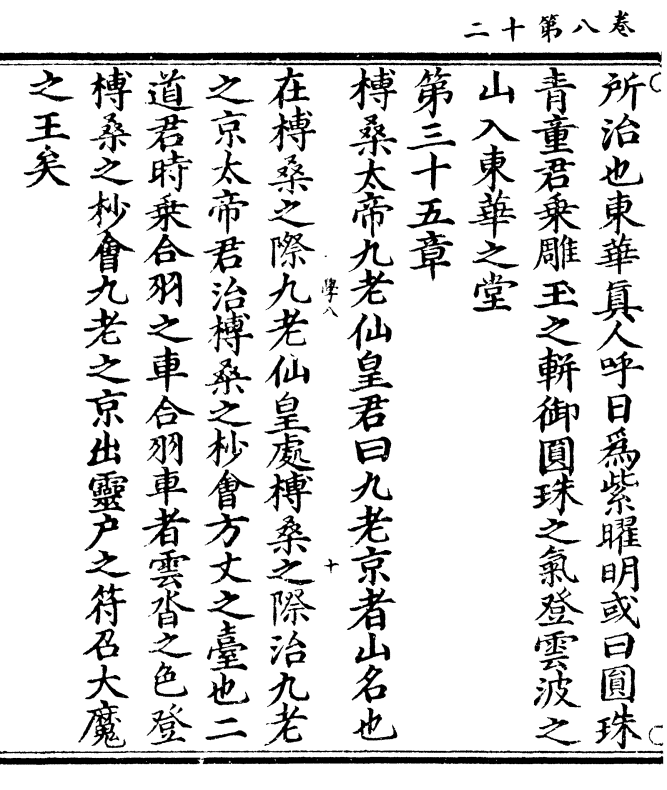 卷八第十二
所治也東華真人呼日為紫曜明或曰圓珠
青童君乗雕玉之軿御圓珠之氣登雲波之
山入東華之堂
第三十五章
榑桑太帝九老仙皇君曰九老京者山名也
學八
十
在榑桑之際九老仙皇處榑桑之際治九老
之京太帝君治榑桑之杪會方丈之臺也二
道君時乗合羽之車合羽車者雲沓之色登
榑桑之杪會九老之京出靈户之符召大魔
之王矣